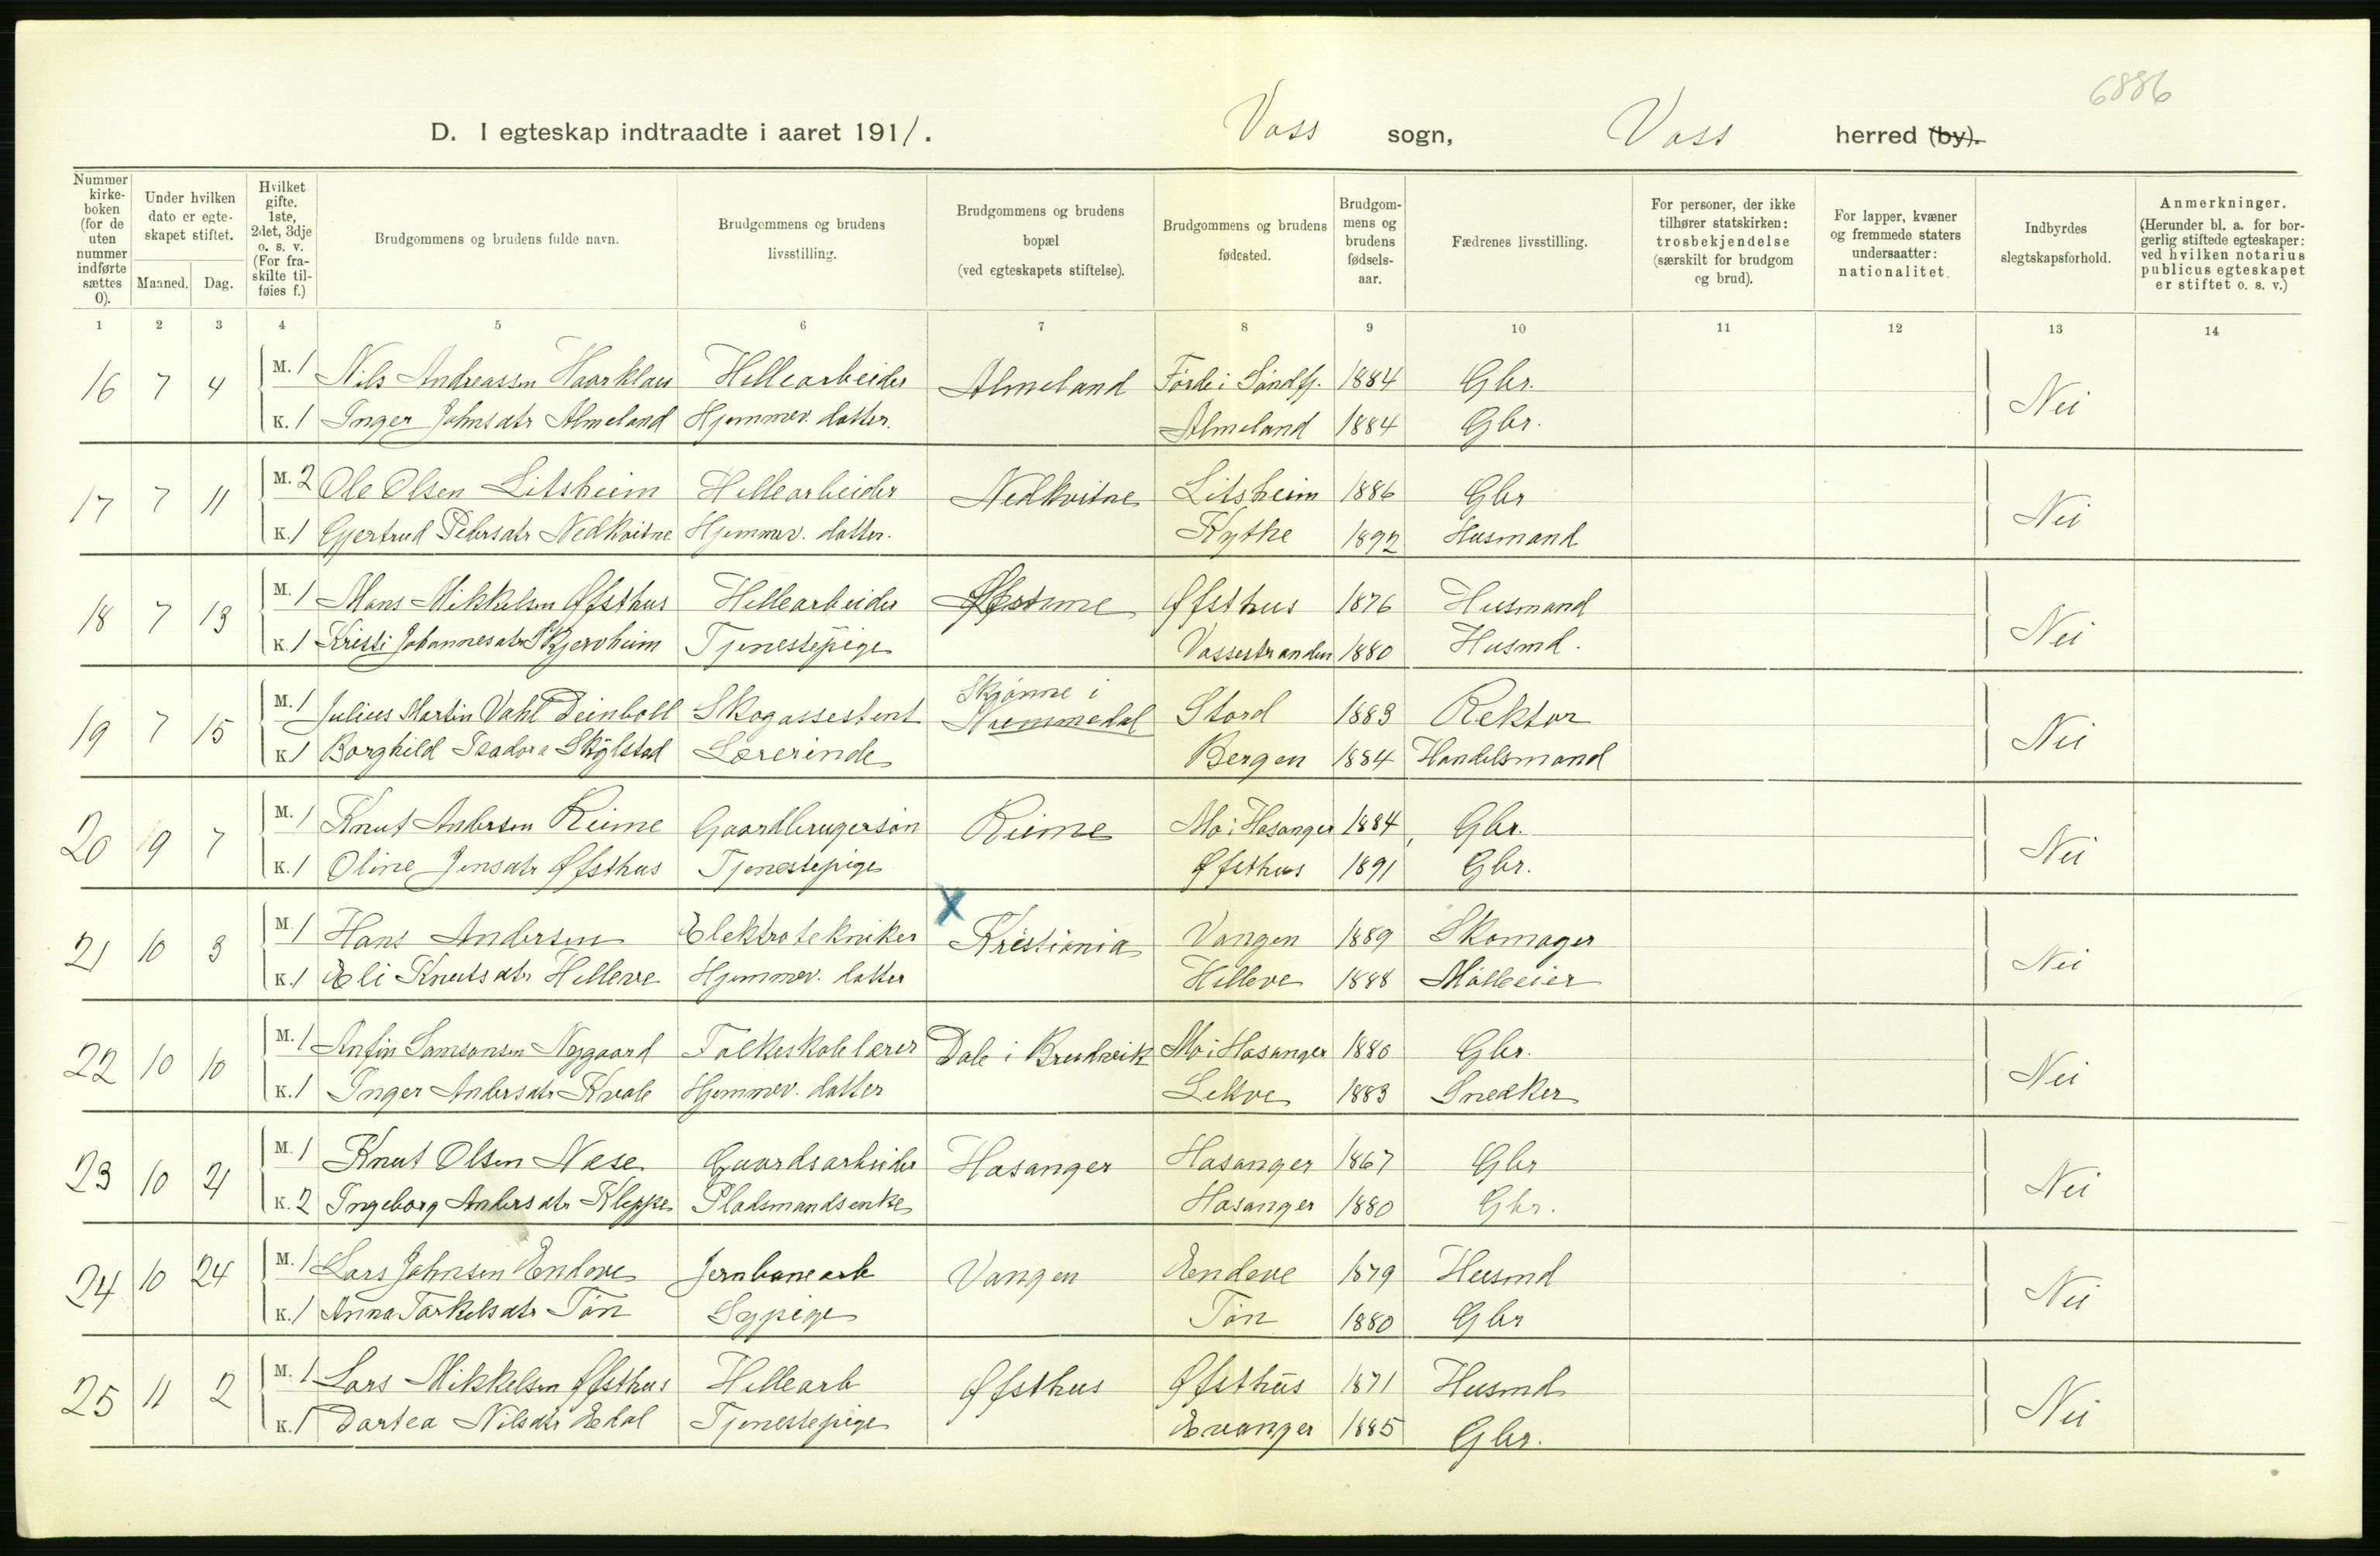 6886
D. I egteskap indtraadte i aaret 1911. Voss sogn, Voss herred (by).
Nummer kirke-boken (for de uten nummer indførte sættes 0). | Under hvilken dato er egte-skapet stiftet. Maaned. Dag. | Hvilket gifte. 1ste, 2det, 3dje o. s. v. (For fra-skilte til-føies f.) | Brudgommens og brudens fulde navn. | Brudgommens og brudens livsstilling. | Brudgommens og brudens bopæl (ved egteskapets stiftelse). | Brudgommens og brudens fødested. | Brudgom-mens og brudens fødsels-aar. | Fædrenes livsstilling. | For personer, der ikke tilhører statskirken: trosbekjendelse (særskilt for brudgom og brud). | For lapper, kvæner og fremmede staters undersaatter: nationalitet. | Indbyrdes slegtskapsforhold. | Anmerkninger. (Herunder bl. a. for bor-gerlig stiftede egteskaper: ved hvilken notarius publicus egteskapet er stiftet o. s. v.)
1 2 3 4 5 6 7 8 9 10 11 12 13 14
16 7 4 M. 1 Nils Andreassen Haarklau Hellearbeider Almeland Førde i Søndfj. 1884 Gbr. Nei
K. 1 Inger Johnsdtr Almeland Hjemmev. datter. Almeland 1884 Gbr.
17 7 11 M. 2 Ole Olsen Litsheim Hellearbeider Nedkvitne Litsheim 1886 Gbr Nei
K. 1 Gjertrud Pedersdtr Nedkvitne Hjemmev. datter. Kythe 1892 Husmand
18 7 13 M. 1 Mons Mikkelsen Øfsthus Hellearbeider Øfsthus 1876 Husmand Nei
K. 1 Kristi Johannesdtr Skjervheim Tjenestepige Vossestranden 1880 Husmd.
19 7 15 M. 1 Julius Martin Vahl Deinboll Skogassestent Skjønne i Nummedal Stord 1883 Rektor Nei
K. 1 Borghild Isadora Skjlstad Lærerinde Bergen 1884 Handelsmand
20 9 7 M. 1 Knut Andersen Rime Gaardbrugersøn Rime Mo i Hosanger 1884 Gbr. Nei
K. 1 Oline Jensdtr Øfsthus Tjenestepige Øfsthus 1891 Gbr.
X
21 10 3 M. 1 Hans Andersen Elektrotekniker Kristiania Vangen 1889 Skomager Nei
K. 1 Eli Knutsdtr Helleve Hjemmev. datter Helleve 1888 Mølleeier
22 10 10 M. 1 Anfin Samsonsen Nygaard Folkeskolelærer Dale i Brudvik Mo i Hosanger 1880 Gbr. Nei
K. 1 Inger Andersdtr Kvale Hjemmev. datter Lekve 1883 Snedker
23 10 21 M. 1 Knut Olsen Nese Gaardsarbeider Hosanger Hosanger 1867 Gbr Nei
K. 2 Ingeborg Andersdtr Kleppe Pladsmandsenke Hosanger 1880 Gbr.
24 10 24 M. 1 Lars Johnsen Endeve Jernbanearb Vangen Endeve 1879 Husmd Nei
K. 1 Anna Torkelsdtr Tøn Sypige Tøn 1880 Gbr
25 11 2 M. 1 Lars Mikkelsen Øfsthus Hellearb Øfsthus Øfsthus 1871 Husmd Nei
K. 1 Dortea Nilsdtr Edal Tjenestepige Evanger 1885 Gbr.